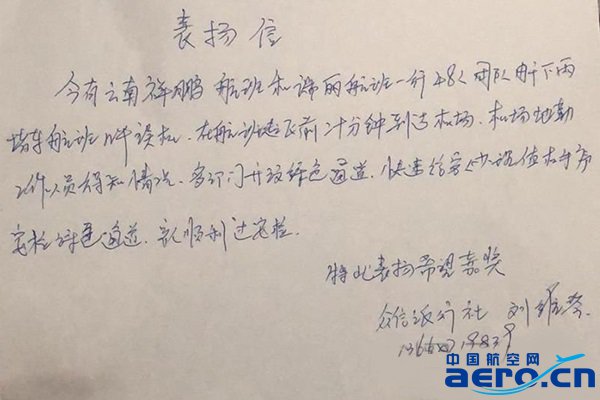 表扬信
今有云南祥鹏航班和诺丽航班一行48人团队由于下雨
堵车航班几乎误机、在航班起飞前二十分钟到达机场、机场地勤
工作人员得知情况、多部门开放绿色通道、快速给客人办
安检绿色通道、顺利过安检
特此表扬希望嘉奖
众信旅行社 刘
中国航空网
aero.cn